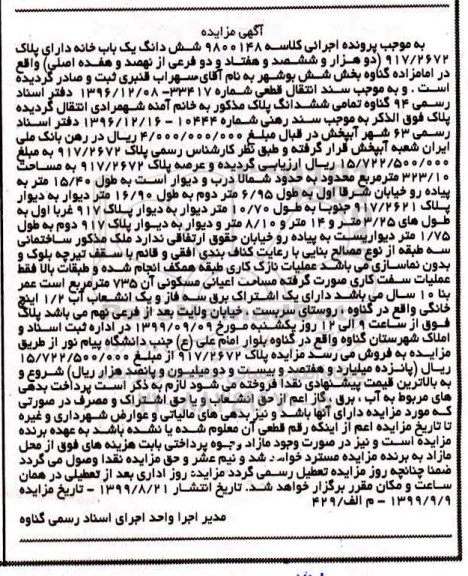 آگهی مزایده
به موجب پرونده اجرائی کلاسه ۹۸۰۰۱۴۸ شش دانگ یک باب خانه دارای پلاک
۹۱۷/۲۶۷۲ (دو هزار و ششصد و هفتاد و دو فرعی از نهصد و هفده اصلی) واقع
در امامزاده گناوه بخش شش بوشهر به نام آقای سهراب قنبری ثبت و صادر گردیده
است . و به موجب سند انتقال قطعی شماره ۳۳۴۱۷- ۱۳۹۶/۱۲/۰۸ دفتر اسناد
رسمی ۹۴ گناوه تمامی ششدانگ پلاک مذکور به خانم آمنه شهمرادی انتقال گردیده
پلاک فوق الذکر به موجب سند رهنی شماره ۱۰۴۴۴ – ۱۳۹۶/۱۲/۱۶ دفتر اسناد
رسمی ۶۳ شهر آبپخش در قبال مبلغ ۴/۰۰۰/۰۰۰/۰۰۰ ریال در رهن بانک ملی
ایران شعبه آبپخش قرار گرفته و طبق نظر کارشناس رسمی پلاک ۹۱۷/۲۶۷۲ به مبلغ
۱۵/۷۲۲/۵۰۰/۰۰۰ ریال ارزیابی گردیده و عرصه پلاک ۹۱۷/۲۶۷۲ به مساحت
۳۲۳/۱۰ مترمربع محدود به حدود شمالا درب و دیوار است به طول ۱۵/۴۰ متر به
پیاده رو خیابان شرقا اول به طول ۶/۹۵ متر دوم به طول ۱۶/۹۰ متر دیوار به دیوار
پلاک ۹۱۷/۲۶۲۱ جنوبا به طول ۱۰/۷۰ متر دیوار به دیوار پلاک ۹۱۷ غربا اول به
طول های ۳/۲۵ متر و ۱۴ متر و ۸/۱۰ متر و دیوار به دیوار پلاک ۹۱۷ دوم به طول
۱/۷۵ متر دیواریست به پیاده رو خیابان حقوق ارتفاقی ندارد ملک مذکور ساختمانی
سه طبقه از نوع مصالح بنایی با رعایت کناف بندی افقی و قائم با سقف تیرچه بلوک و
بدون نماسازی می باشد عملیات نازک کاری طبقه همکف انجام شده و طبقات بالا فقط
عملیات سفت کاری صورت گرفته مساحت اعیانی مسکونی آن ۷۳۵ مترمربع است عمر
بنا ۱۰ سال می باشد دارای یک اشتراک برق سه فاز و یک انشعاب آب ۱/۲ اینچ
خانگی واقع در گناوه ، روستای سربست ، خیابان ولایت بعد از فرعی نهم می باشد پلاک
فوق از ساعت ۹ الی ۱۲ روز یکشنبه مورخ ۱۳۹۹/۰۹/۰۹ در اداره ثبت اسناد و
املاک شهرستان گناوه واقع در گناوه بلوار امام علی (ع) جنب دانشگاه پیام نور از طریق
مزایده به فروش می رسد مزایده پلاک ۹۱۷/۲۶۷۲ از مبلغ ۱۵/۷۲۲/۵۰۰/۰۰۰
ریال (پانزده میلیارد و هفتصد و بیست و دو میلیون و پانصد هزار ریال) شروع و
به بالاترین قیمت پیشنهادی نقدا فروخته می شود لازم به ذکر است پرداخت بدهی
های مربوط به آب ، برق ، گاز اعم از حق انشعاب و یا حق اشتراک و مصرف در صورتی
که مورد مزایده دارای آنها باشد و نیز بدهی های مالیاتی و عوارض شهرداری و غیره
تا تاریخ مزایده اعم از اینکه رقم قطعی آن معلوم شده یا نشده باشد به عهده برنده
مزایده است و نیز در صورت وجود مازاد وجوه پرداختی بابت هزینه های فوق از محل
مازاد به برنده مزایده مسترد خواهد شد و نیم عشر و حق مزایده نقدا وصول می گردد
ضمنا چنانچه روز مزایده تعطیل رسمی گردد مزایده روز اداری بعد از تعطیلی در همان
ساعت و مکان مقرر برگزار خواهد شد. تاریخ انتشار ۱۳۹۹/۸/۲۱ – تاریخ مزایده
۱۳۹۹/۹/۹ – م الف/۴۲۹
مدیر اجرا واحد اجرای اسناد رسمی گناوه